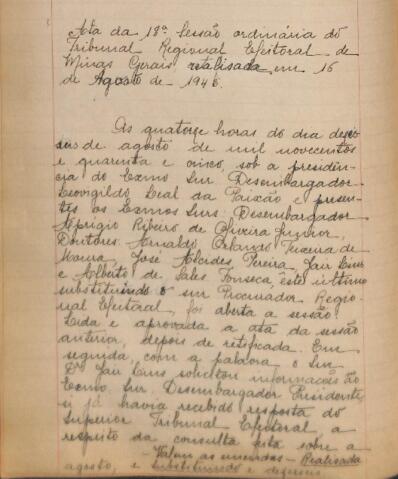 Ata da 18ª sessão ordinária do
Tribunal Regional Eleitoral de
Minas Gerais, realisada em 16
de Agosto de 1945.
As quatorze horas do dia dezes-
seis de agosto de mil novecentos
e quarenta e cinco, sob a presidên-
cia do Exmo Snr. Desembargador
Leovigildo Leal da Paixão e presen-
tes os Exmos Snrs. Desembargador
Aprigio Ribeiro de Oliveira Junior,
Doutores: Arnaldo, Orlando Teixeira de
Moura, José Alcides Pereira, Jair Lins
e Alberto de Sales Fonseca, este ultimo
substituindo o snr Procurador Regio-
nal Eleitoral, foi aberta a sessão.
Lida e aprovada a ata da sessão
anterior, depois de retificada. Em
seguida, com a palavra o Snr
Dr. Jair Lins solicitou informações ao
Exmo Snr. Desembargador Presidente,
si já havia recebido resposta do
Superior Tribunal Eleitoral, a
respeito da consulta feita sobre a
- Valem as emendas - Realisada
agosto, e substituindo e